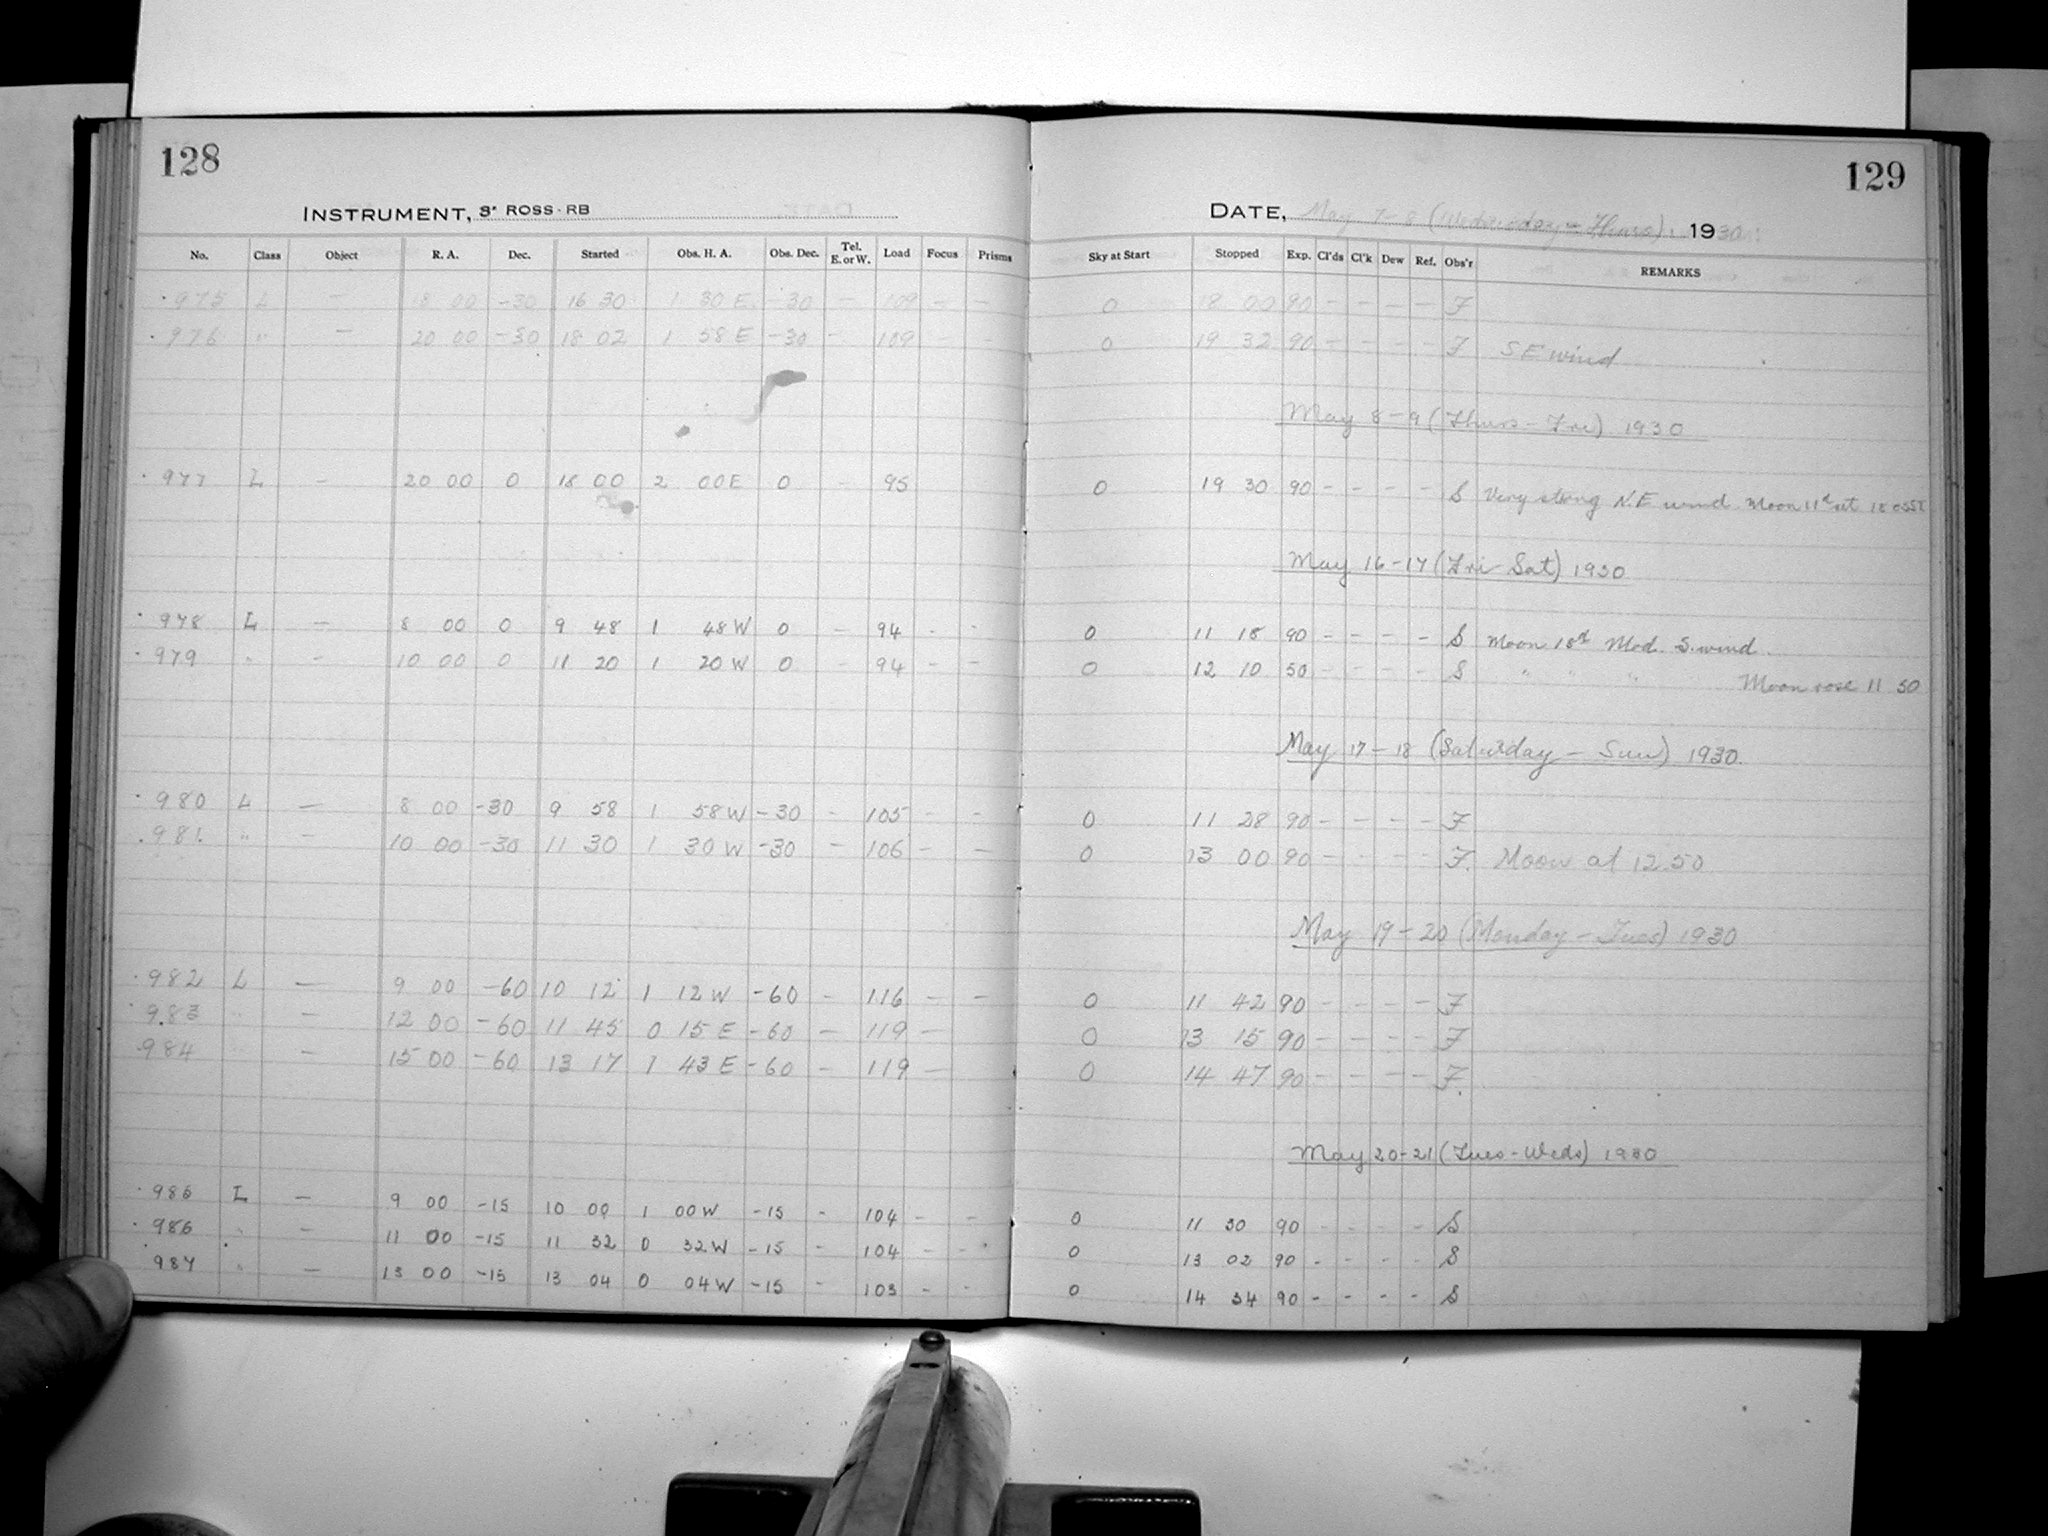 128
INSTRUMENT, 3" ROSS-RB
No. Class Object R. A. Dec. Started Obs. H. A. Obs. Dec. Tel. E. or W. Load Focus Prisms
975 L — 18 00 -30 16 30 1 30 E -30 — 109 — —
976 " — 20 00 -30 18 02 1 58 E -30 - 109 - -
977 L — 20 00 0 18 00 2 00 E 0 - 95
978 L — 8 00 0 9 48 1 48 W 0 — 94 - -
979 " — 10 00 0 11 20 1 20 W 0 - 94 - -
980 L — 8 00 -30 9 58 1 58 W -30 - 105 - -
981 " — 10 00 -30 11 30 1 30 W -30 - 106 - —
982 L — 9 00 -60 10 12 1 12 W -60 - 116 - —
983 " — 12 00 -60 11 45 0 15 E -60 — 119 —
984 — 15 00 -60 13 17 1 43 E -60 - 119 —
985 L — 9 00 -15 10 00 1 00 W -15 - 104 - -
986 " — 11 00 -15 11 32 0 32 W -15 - 104 - -
987 " — 13 00 -15 13 04 0 04 W -15 - 103 - -
129
DATE, May 7-8 (Wednesday - Thurs). 1930
Sky at Start Stopped Exp. Cl'ds Cl'k Dew Ref. Obs'r REMARKS
0 18 00 90 - - - - F
0 19 32 90 - - - - F S E wind
May 8-9 (Thurs - Fri) 1930
0 19 30 90 - - - - S Very strong N.E wind Moon 11d set 18 05ST
May 16-17 (Fri-Sat) 1930
0 11 18 90 - - - - S Moon 18d Mod. S. wind.
0 12 10 50 - - - - S " " " Moon rose 11 50
May 17-18 (Saturday - Sun) 1930.
0 11 28 90 - - - - F
0 13 00 90 - - - - F. Moon at 12.50
May 19-20 (Monday - Tues) 1930
0 11 42 90 - - - - F
0 13 15 90 - - - - F
0 14 47 90 - - - - F.
May 20-21 (Tues-Weds) 1930
0 11 30 90 - - - - S
0 13 02 90 - - - - S
0 14 34 90 - - - - S